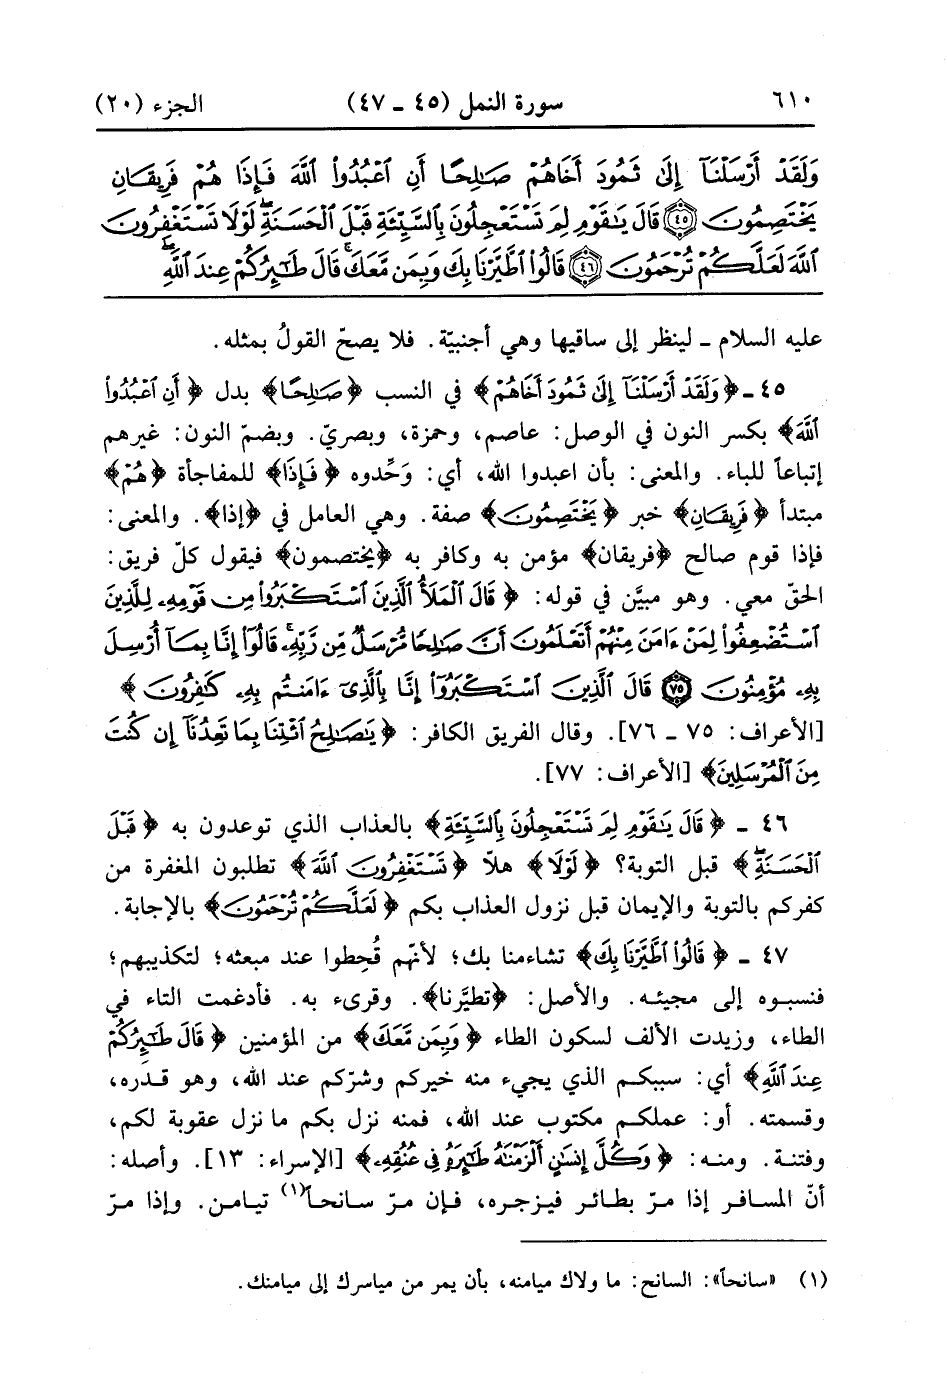 ٦١٠ سورة النمل (٤٥ ـ ٤٧) الجزء (٢٠)
وَلَقَدْ أَرْسَلْنَآ إِلَىٰ ثَمُودَ أَخَاهُمْ صَٰلِحًا أَنِ ٱعْبُدُوا۟ ٱللَّهَ فَإِذَا هُمْ فَرِيقَانِ
يَخْتَصِمُونَ ﴿٤٥﴾ قَالَ يَٰقَوْمِ لِمَ تَسْتَعْجِلُونَ بِٱلسَّيِّئَةِ قَبْلَ ٱلْحَسَنَةِ ۖ لَوْلَا تَسْتَغْفِرُونَ
ٱللَّهَ لَعَلَّكُمْ تُرْحَمُونَ ﴿٤٦﴾ قَالُوا۟ ٱطَّيَّرْنَا بِكَ وَبِمَن مَّعَكَ ۚ قَالَ طَٰٓئِرُكُمْ عِندَ ٱللَّهِ ۖ
عليه السلام ـ لينظر إلى ساقيها وهي أجنبيّة. فلا يصحّ القولُ بمثله.
٤٥ ـ ﴿وَلَقَدْ أَرْسَلْنَآ إِلَىٰ ثَمُودَ أَخَاهُمْ﴾ في النسب ﴿صَٰلِحًا﴾ بدل ﴿أَنِ ٱعْبُدُوا۟
ٱللَّهَ﴾ بكسر النون في الوصل: عاصم، وحمزة، وبصريّ. وبضمّ النون: غيرهم
إتباعاً للباء. والمعنى: بأن اعبدوا الله، أي: وَحِّدوه ﴿فَإِذَا﴾ للمفاجأة ﴿هُمْ﴾
مبتدأ ﴿فَرِيقَانِ﴾ خبر ﴿يَخْتَصِمُونَ﴾ صفة. وهي العامل في ﴿إذا﴾. والمعنى:
فإذا قوم صالح ﴿فريقان﴾ مؤمن به وكافر به ﴿يختصمون﴾ فيقول كلّ فريق:
الحقّ معي. وهو مبيَّن في قوله: ﴿قَالَ ٱلْمَلَأُ ٱلَّذِينَ ٱسْتَكْبَرُوا۟ مِن قَوْمِهِۦ لِلَّذِينَ
ٱسْتُضْعِفُوا۟ لِمَنْ ءَامَنَ مِنْهُمْ أَتَعْلَمُونَ أَنَّ صَٰلِحًا مُّرْسَلٌ مِّن رَّبِّهِۦ ۚ قَالُوٓا۟ إِنَّا بِمَآ أُرْسِلَ
بِهِۦ مُؤْمِنُونَ ﴿٧٥﴾ قَالَ ٱلَّذِينَ ٱسْتَكْبَرُوٓا۟ إِنَّا بِٱلَّذِىٓ ءَامَنتُم بِهِۦ كَٰفِرُونَ﴾
[الأعراف: ٧٥ ـ ٧٦]. وقال الفريق الكافر: ﴿يَٰصَٰلِحُ ٱئْتِنَا بِمَا تَعِدُنَآ إِن كُنتَ
مِنَ ٱلْمُرْسَلِينَ﴾ [الأعراف: ٧٧].
٤٦ ـ ﴿قَالَ يَٰقَوْمِ لِمَ تَسْتَعْجِلُونَ بِٱلسَّيِّئَةِ﴾ بالعذاب الذي توعدون به ﴿قَبْلَ
ٱلْحَسَنَةِ ۖ﴾ قبل التوبة؟ ﴿لَوْلَا﴾ هلاّ ﴿تَسْتَغْفِرُونَ ٱللَّهَ﴾ تطلبون المغفرة من
كفركم بالتوبة والإيمان قبل نزول العذاب بكم ﴿لَعَلَّكُمْ تُرْحَمُونَ﴾ بالإجابة.
٤٧ ـ ﴿قَالُوا۟ ٱطَّيَّرْنَا بِكَ﴾ تشاءمنا بك؛ لأنّهم قُحِطوا عند مبعثه؛ لتكذيبهم؛
فنسبوه إلى مجيئه. والأصل: ﴿تطيَّرنا﴾. وقرىء به. فأدغمت التاء في
الطاء، وزيدت الألف لسكون الطاء ﴿وَبِمَن مَّعَكَ﴾ من المؤمنين ﴿قَالَ طَٰٓئِرُكُمْ
عِندَ ٱللَّهِ﴾ أي: سببكم الذي يجيء منه خيركم وشرّكم عند الله، وهو قدَره،
وقسمته. أو: عملكم مكتوب عند الله، فمنه نزل بكم ما نزل عقوبة لكم،
وفتنة. ومنه: ﴿وَكُلَّ إِنسَٰنٍ أَلْزَمْنَٰهُ طَٰٓئِرَهُۥ فِى عُنُقِهِۦ﴾ [الإسراء: ١٣]. وأصله:
أنّ المسافر إذا مرّ بطائر فيزجره، فإن مرّ سانحاً(١) تيامن. وإذا مرّ
(١) «سانحاً»: السانح: ما ولاك ميامنه، بأن يمر من مياسرك إلى ميامنك.